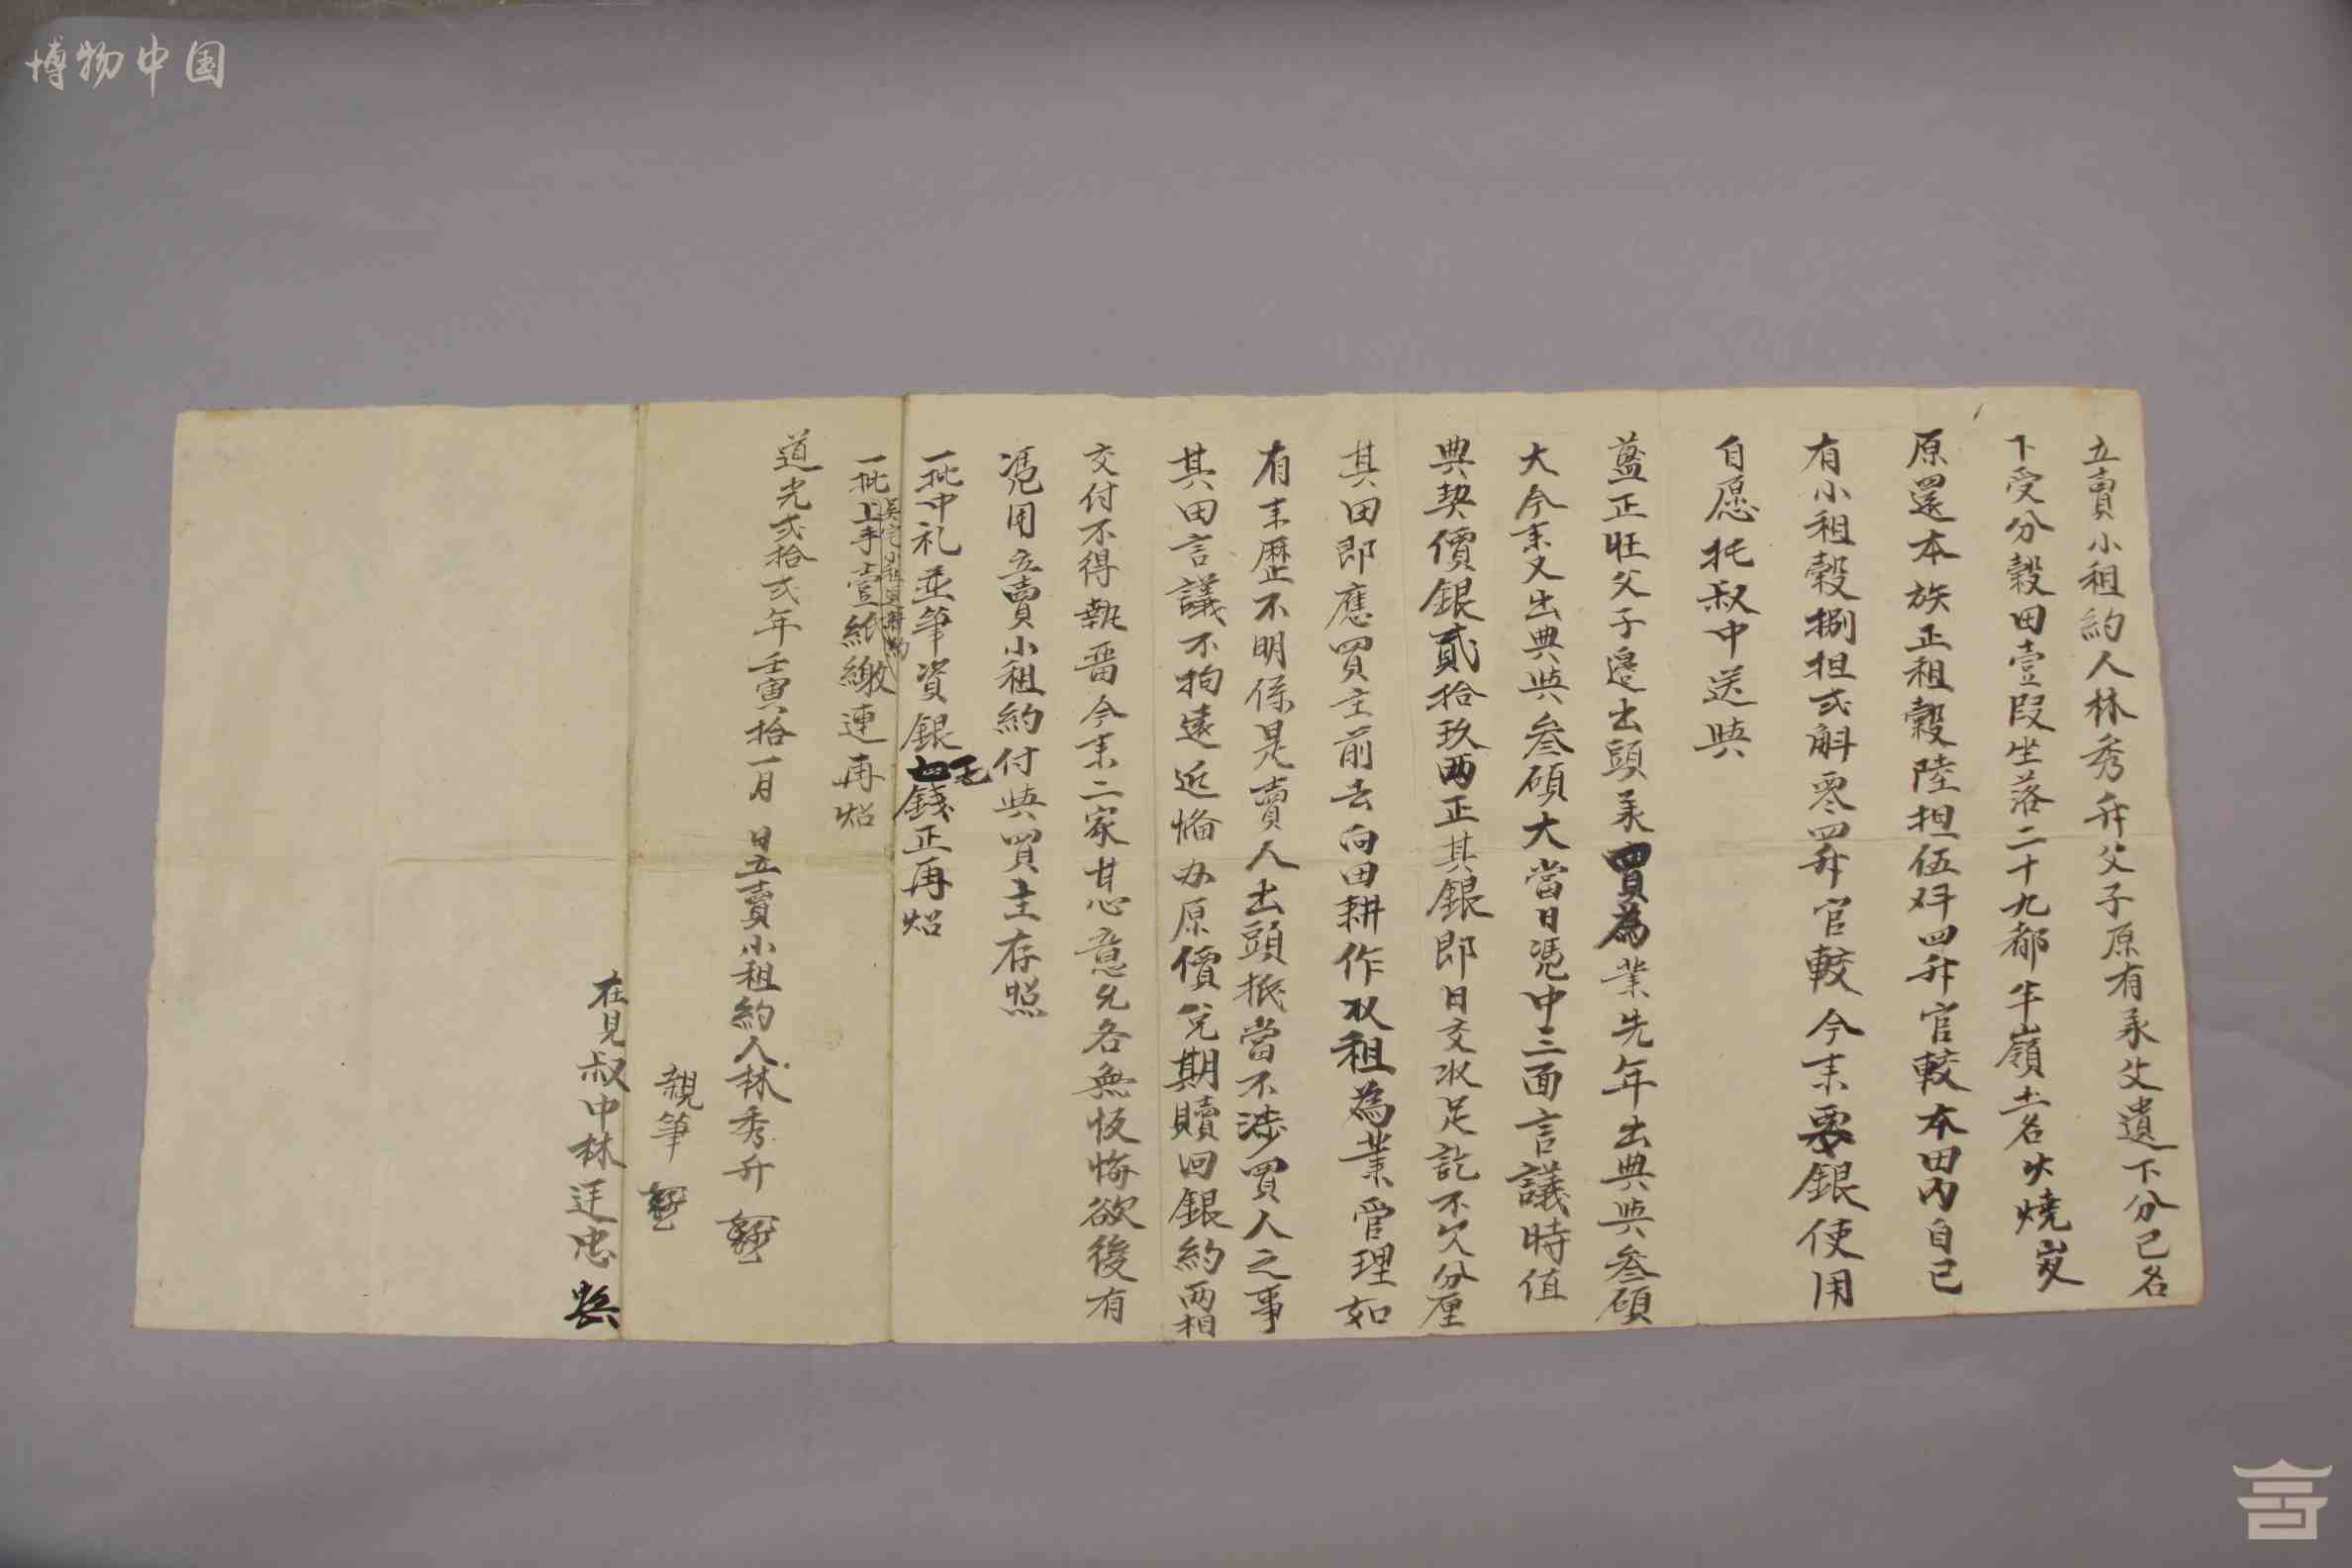 博物中国
立賣小租約人林秀升父子原有承父遺下分己名
下受分穀田壹段坐落二十九都牛嶺土名火燒岌
原還本族正租穀陸担伍斗四升官較本田內自己
有小租穀捌担弍斛零四升官較今来要銀使用
自愿托叔中送與
藍正旺父子邊出頭承買為業先年出典與叁碩
大今来又出典與叁碩大當日憑中三面言議時值
典契價銀貳拾玖両正其銀即日交收足訖不欠分厘
其田即應買主前去向田耕作收租為業管理如
有来歷不明係是賣人出頭抵當不涉買人之事
其田言議不拘遠近俻办原價兌期贖回銀約両相
交付不得執畱今来二家甘心意允各無恢悔欲後有
憑用立賣小租約付與買主存照
一批中礼並筆資銀七錢正再炤
一批上手壹紙繳連再炤
道光弍拾弍年壬寅拾一月 日立賣小租約人林秀升
親筆
在見叔中林廷忠